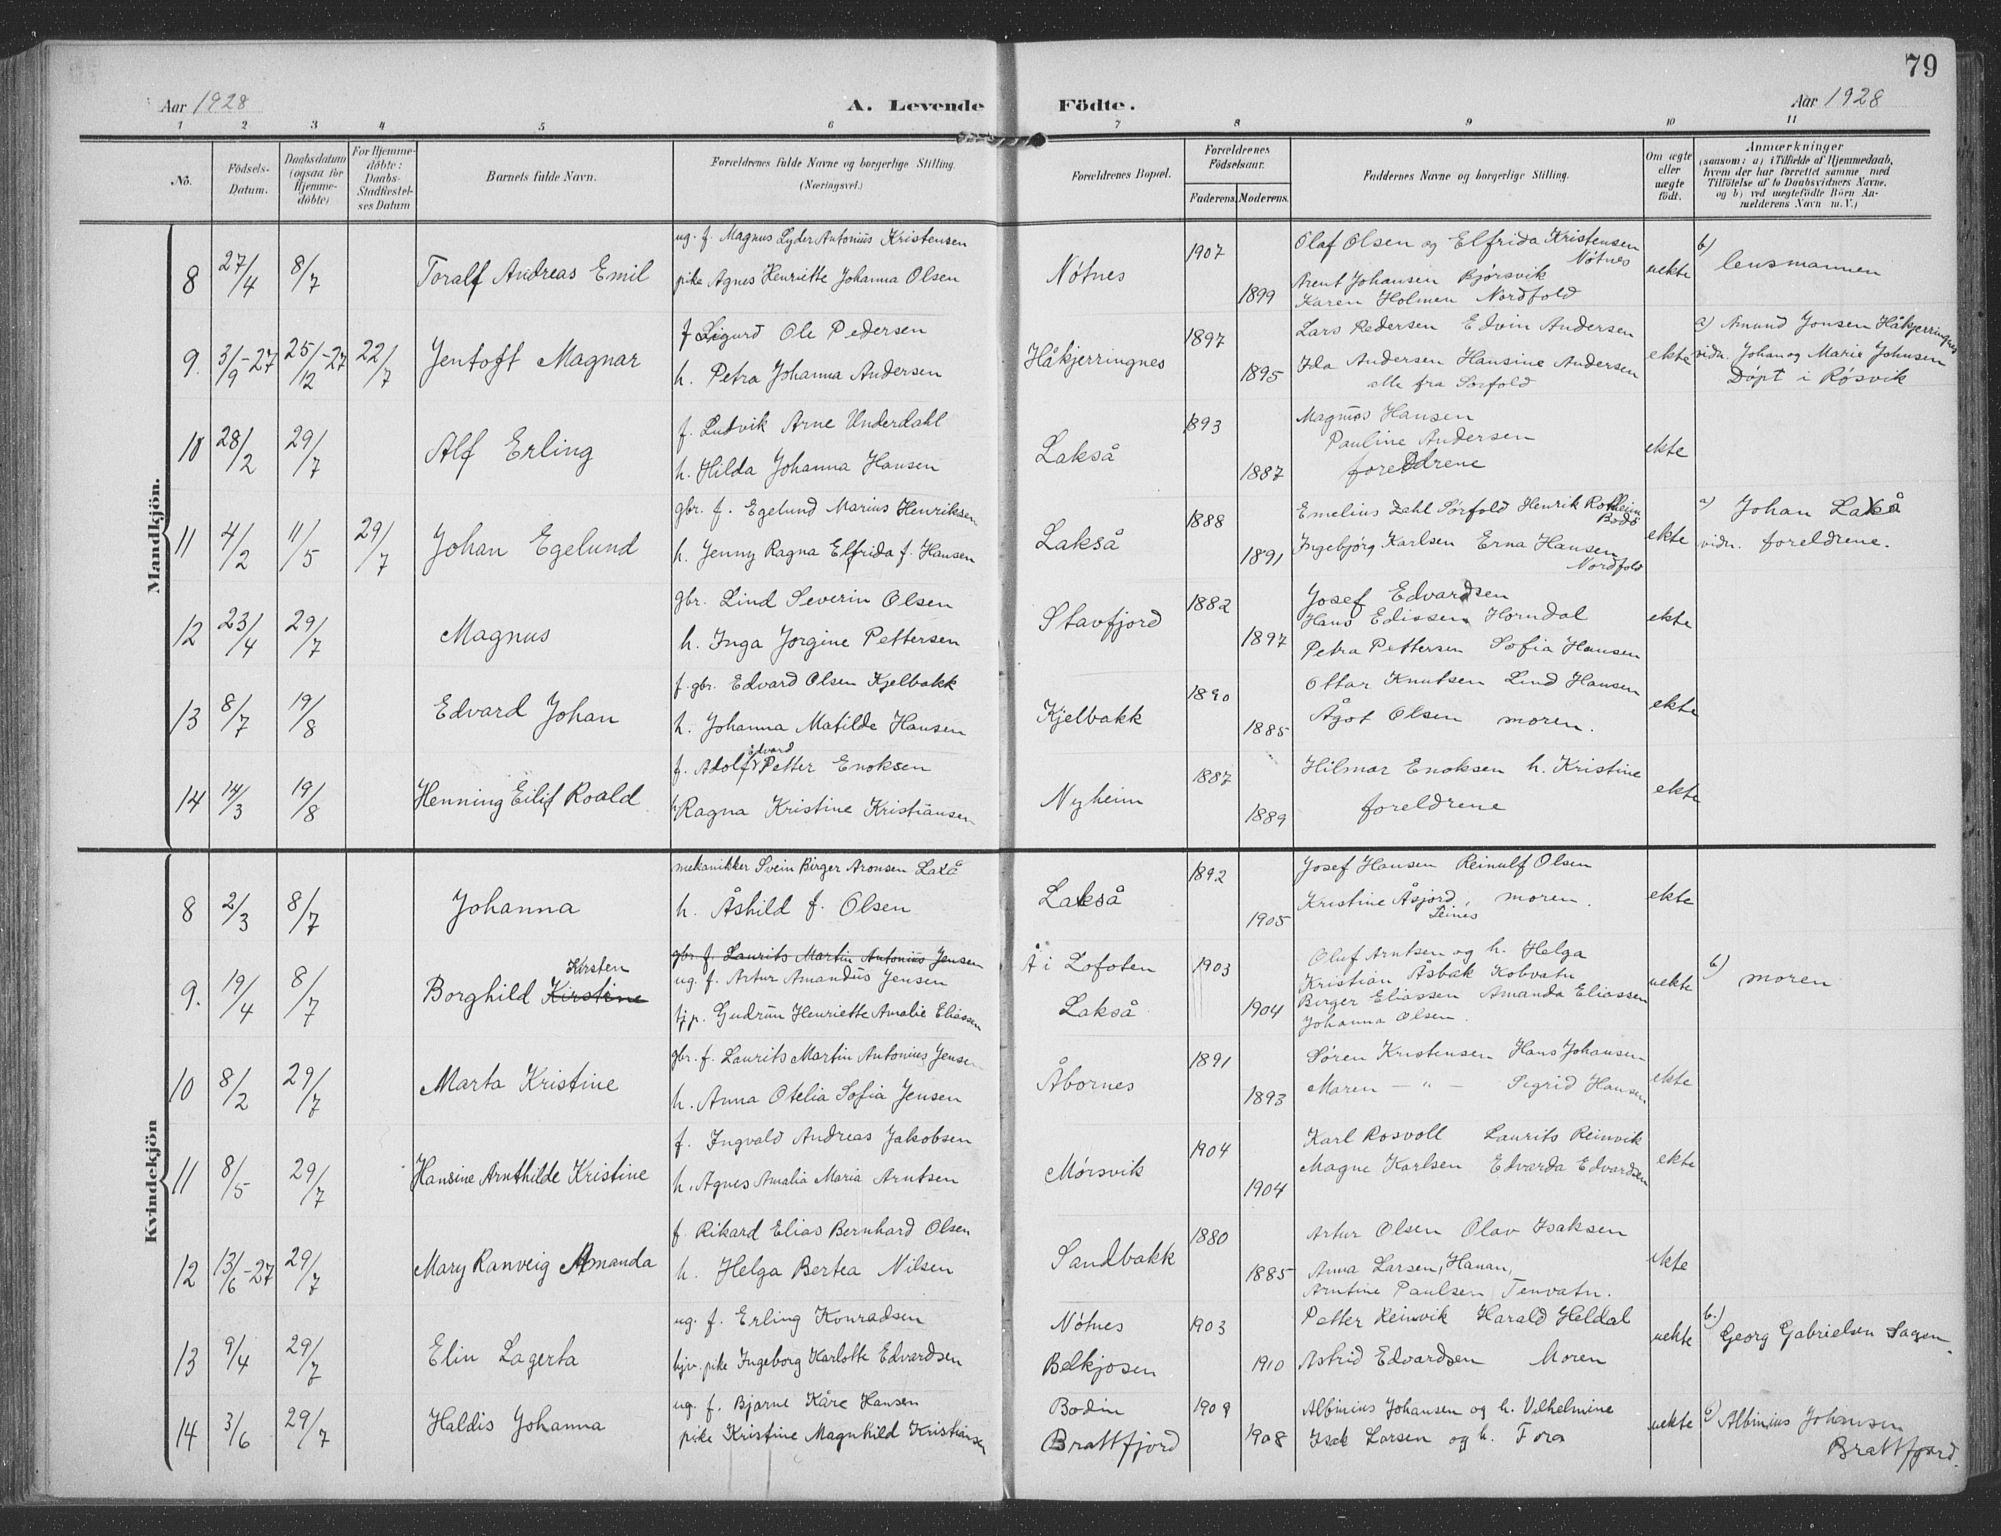 79
Aar 1928 A. Levende Födte. Aar 1928
1 2 3 4 5 6 7 8 9 10 11
No.
Födsels-Datum.
Daabsdatum (ogsaa for Hjemme-döbte)
For Hjemme-döbte: Daabs-Stadfæstel-ses Datum
Barnets fulde Navn.
Forældrenes fulde Navne og borgerlige Stilling. (Næringsvei.)
Forældrenes Bopæl.
Forældrenes Födselsaar.
Faderens. Moderens.
Faddernes Navne og borgerlige Stilling.
Om ægte eller uægte födt.
Anmærkninger
(saasom: a) i Tilfælde af Hjemmedaab,
hvem der har forrettet samme med
Tilföielse af to Daabsvidners Navne.
og b) ved uægtefödte Börn An-
melderens Navn m. V.)
Mandkjön.
8 27/4 8/7 Toralf Andreas Emil
ug. f. Magnus Lyder Antonius Kristensen
pike Agnes Henriette Johanna Olsen
Nötnes 1907 1899
Olaf Olsen og Elfrida Kristensen
Nötnes
Arent Johansen Bjørsvik
Karen Holmen Nordfold
uekte b) lensmannen
9. 3/9-27 25/12-27 22/7 Jentoft Magnar
f. Sigurd Ole Pedersen
h. Petra Johanna Andersen
Håkjerringnes 1897 1895
Lars Pedersen Edvin Andersen
Ida Andersen Hansine Andersen
alle fra Sørfold
ekte a) Amund Jonsen Håkjerringnes
vidn. Johan og Marie Johnsen
Döpt i Røsvik
10 28/2 29/7 Alf Erling
f. Ludvik Arne Underdahl
h. Hilda Johanna Hansen
Lakså 1893 1887
Magnus Hansen
Pauline Andersen
foreldrene
ekte
11 4/2 11/5 29/7 Johan Egelund
gbr. f. Egelund Marius Henriksen
h. Jenny Ragna Elfrida f. Hansen
Lakså 1888 1891
Emelius Zahl Sörfold Henrik Rotheim
Bodö
Ingebjørg Karlsen Erna Hansen
Nordfold
ekte a) Johan Lakså
vidn. foreldrene.
12 23/4 29/7 Magnus
gbr. Lind Severin Olsen
h. Inga Jorgine Pettersen
Stavfjord 1882 1897
Josef Edvardsen
Hans Edissen Horndal
Petra Pettersen Sofia Hansen
ekte
13 8/7 19/8 Edvard Johan
f. gbr. Edvard Olsen Kjelbakk
h. Johanna Matilde Hansen
Kjelbakk 1890 1885
Ottar Knutsen Lind Hansen
Ågot Olsen moren.
ekte
14 14/3 19/8 Henning Eilif Roald
Edvard
f. Adolf Petter Enoksen
h. Ragna Kristine Kristiansen
Nyheim 1887 1889
Hilmar Enoksen h. Kristine
foreldrene
ekte
Kvindekjön
8 2/3 8/7 Johanna
mekanikker Svein Birger Aronsen Laxå
h. Åshild f. Olsen
Lakså 1892 1905
Josef Hansen Reinulf Olsen
Kristine Åsjord, moren.
Leines
ekte
9. 19/4 8/7 Kirsten
Borghild Kirstine
gbr. f. Laurits Martin Antonius Jensen
ug. f. Artur Amandus Jensen
tjp. Gudrun Henriette Amalie Eliassen
Å i Lofoten
Lakså
1903 1904
Oluf Arntsen og h. Helga
Kristian Åsbak Kobvatn
Birger Eliassen Amanda Eliassen
Johanna Olsen.
uekte b) moren
10 8/2 29/7 Marta Kristine
gbr. f. Laurits Martin Antonius Jensen
h. Anna Otelia Sofia Jensen
Åbornes 1891 1893
Søren Kristensen Hans Johansen
Maren — " — Sigrid Hansen
ekte
11 8/5 29/7 Hansine Arnthilde Kristine
f. Ingvald Andreas Jakobsen
h. Agnes Amalia Maria Arntsen
Mørsvik 1904 1904
Karl Rosvoll Laurits Reinvik
Magne Karlsen Edvarda Edvardsen
ekte
12 13/6-27 29/7 Mary Ranveig Amanda
f. Rikard Elias Bernhard Olsen
h. Helga Bertea Nilsen
Sandbakk 1880 1885
Artur Olsen Olav Isaksen
Anna Larsen, Hanan,
Arntine Paulsen Tenvatn.
ekte
13 9/4 29/7 Elin Lagerta
ug. f. Erling Konradsen
tjv. pike Ingeborg Karlotte Edvardsen
Nötnes
Belkjosen
1903 1910
Petter Reinvik Harald Heldal
Astrid Edvardsen Moren
uekte b.) Georg Gabrielsen Sagen.
14 3/6 29/7 Haldis Johanna
ug. f. Bjarne Kåre Hansen
pike Kristine Magnhild Kristiansen
Bodin
Brattfjord
1909 1908
Albinius Johansen og h. Vilhelmine
Isak Larsen og h. Tora
uekte b) Albinius Johansen
Brattfjord.